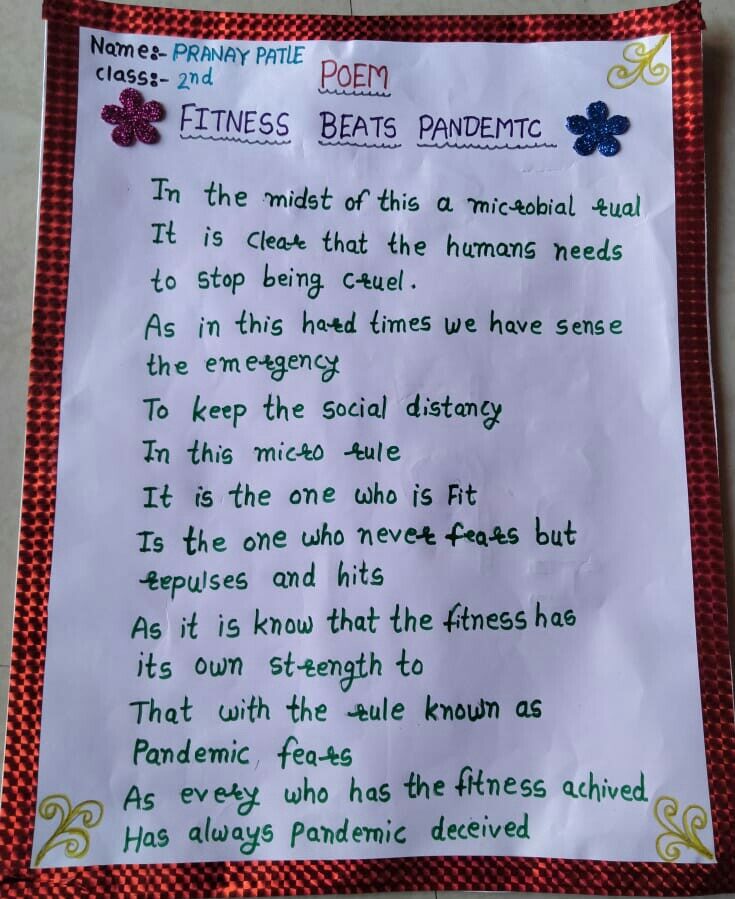 Name:- PRANAY PATLE
Class:- 2nd
POEM
FITNESS BEATS PANDEMTC
In the midst of this a microbial rual
It is clear that the humans needs
to stop being cruel.
As in this hard times we have sense
the emergency
To keep the social distancy
In this micro rule
It is the one who is Fit
Is the one who never fears but
repulses and hits
As it is know that the fitness has
its own strength to
That with the rule known as
Pandemic, fears
As every who has the fitness achived
Has always Pandemic deceived